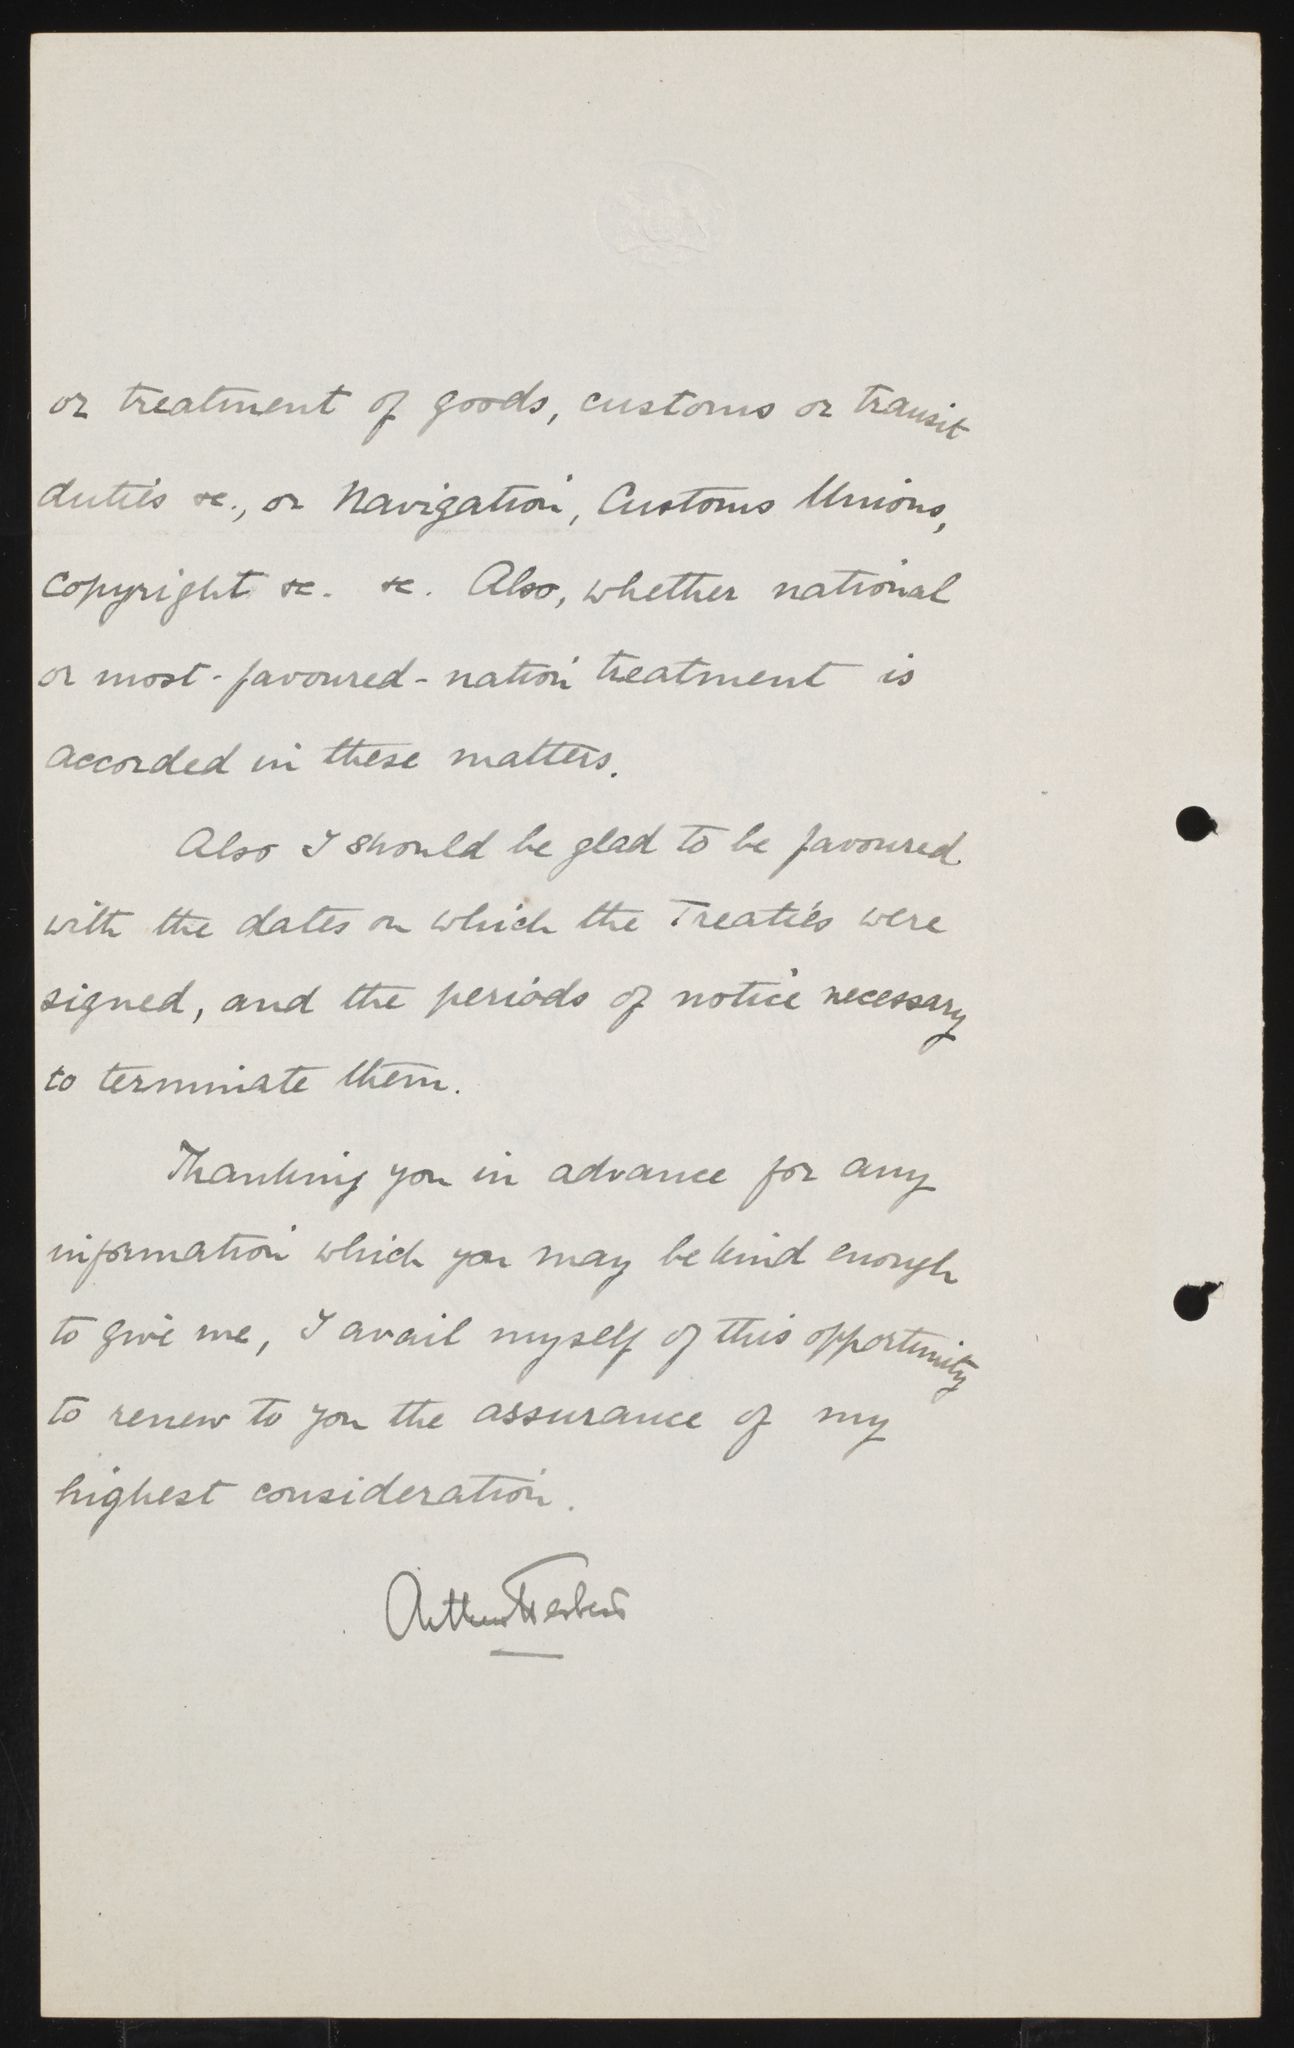 or treatment of goods, customs or transit
duties &c., or Navigation, Customs Unions,
Copyright &c. &c. Also, whether national
or most-favoured-nation treatment is
accorded in these matters.
Also I should be glad to be favoured
with the dates on which the Treaties were
signed, and the periods of notice necessary
to terminate them.
Thanking you in advance for any
information which you may be kind enough
to give me, I avail myself of this opportunity
to renew to you the assurance of my
highest consideration.
Arthur Herbert